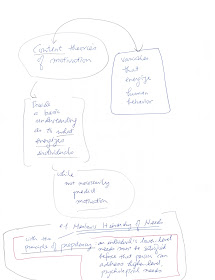 Content theories
of motivation
variables
that
energize
human
behavior
Provide
a basic
understanding
as to what
energizes
individuals
while
not necessarily
predict
motivation
Maslows Hierarchy of Needs
with the
principle of prepotency an individual's lower level
needs must be satisfied
before that person can
address higher level
psychological needs